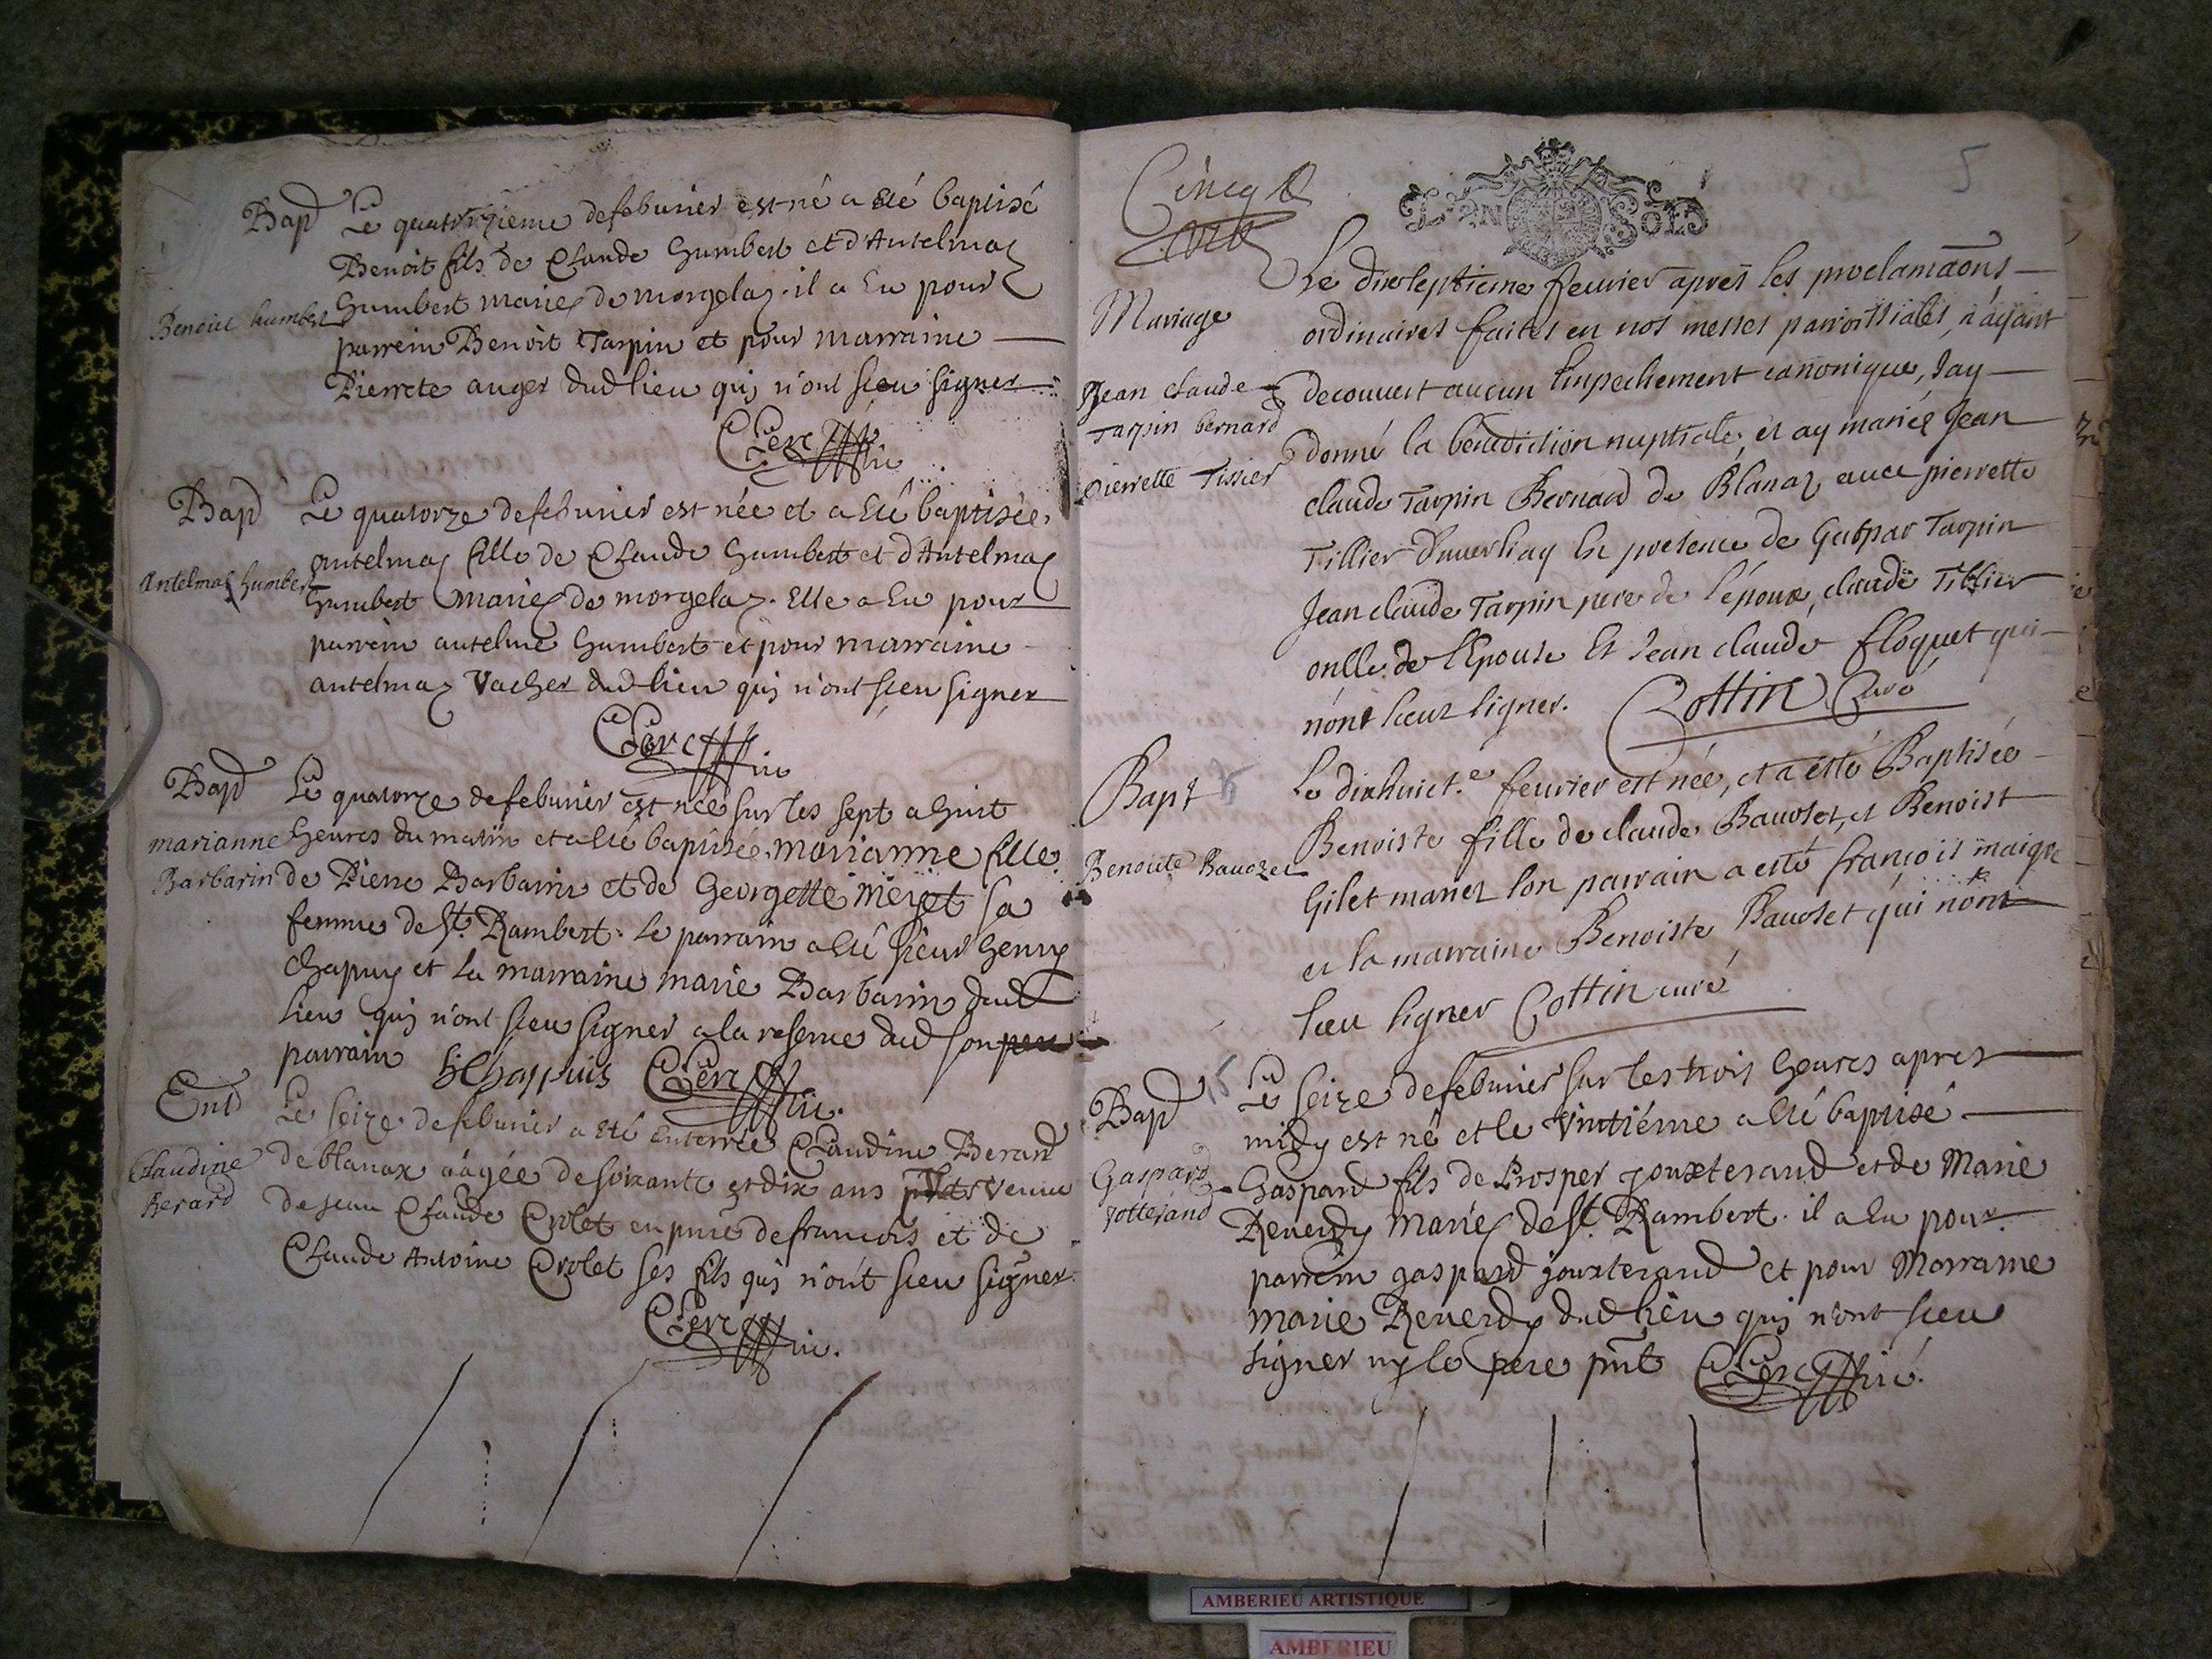 Bap
Le quatorzieme de feburier est né a eté baptisé
Benoit fils de Claude humbert et d'Antelmaz
humbert mariez de morgelaz. il a eu pour
Benoict humbert
parrein Benoit Tarpin et pour marraine
Pierrete auger dud lieu quj n'ont sceu signer
Clerc vic
Bap
Le quatorze de feburier est née et a eté baptisée
antelmaz fille de Claude humbert et d'Antelmaz
Antelmaz humbert
humbert mariez de morgelaz. Elle a eu pour
parrein antelme humbert et pour marraine
antelmaz Vacher dud lieu quj n'ont sceu signer
Clerc vic
Bap
Le quatorze de feburier est née sur les sept a huit
marianne
heures du matin et a eté baptisée marianne fille
Barbarin
de Pierre Barbarin et de Georgette Meriet sa
femme de St. Rambert. Le parrain a eté sieur henry
Chapuy et la marraine marie Barbarin dud
lieu quj n'ont sceu signer a la reserve dud
parrain hChappuis Clerc vic.
Ent
Le seize de feburier a eté enterrée Claudine Berard
Claudine
de blanaz aagée de soixante et dix ans veuve
Berard
de jean Claude Crolet en pnce de francois et de
Claude Antoine Crolet ses fils quj n'ont sceu signer.
Clerc vic.
Cincq
5
DEUX SOLS
Mariage
Le dixseptieme feurier apres les proclamaons
ordinaires faites en nos messes parroissiales, n'ayant
Jean claude
decouvert aucun Empechement canonique, Jay
Tarpin bernard
donné la benediction nuptiale, et ay mariéz Jean
pierrette Tissier
claude Tarpin Bernard de Blanaz avec pierrette
Tissier En presence de Gaspar Tarpin
Jean claude Tarpin pere de l'époux, claude Tissier
oncle de l'Epouse Et Jean claude floquet qui
n'ont sceuz signer. Cottin Curé
Bapt
Le dixhuict.e feurier est née, et a esté Baptisée
Benoiste fille de claude Bauozet, et Benoist
Benoiste Bauozet
Gilet mariez son parrain a esté françois maigre
et la marraine Benoiste Bauozet qui n'ont
sceu signer Cottin curé
Bap
Le seize de feburier sur les trois heures apres
midy est né et le vintiéme a eté baptisé
Gaspard
Gaspard fils de Prosper jouxterand et de Marie
jotterand
Reuerdy mariez de St. Rambert. il a eu pour
parrein gaspard jouxterand et pour Marraine
marie Reuerdy dud lieu quj n'ont sceu
signer ny le pere pnt Clerc vic.
AMBERIEU ARTISTIQUE
AMBERIEU